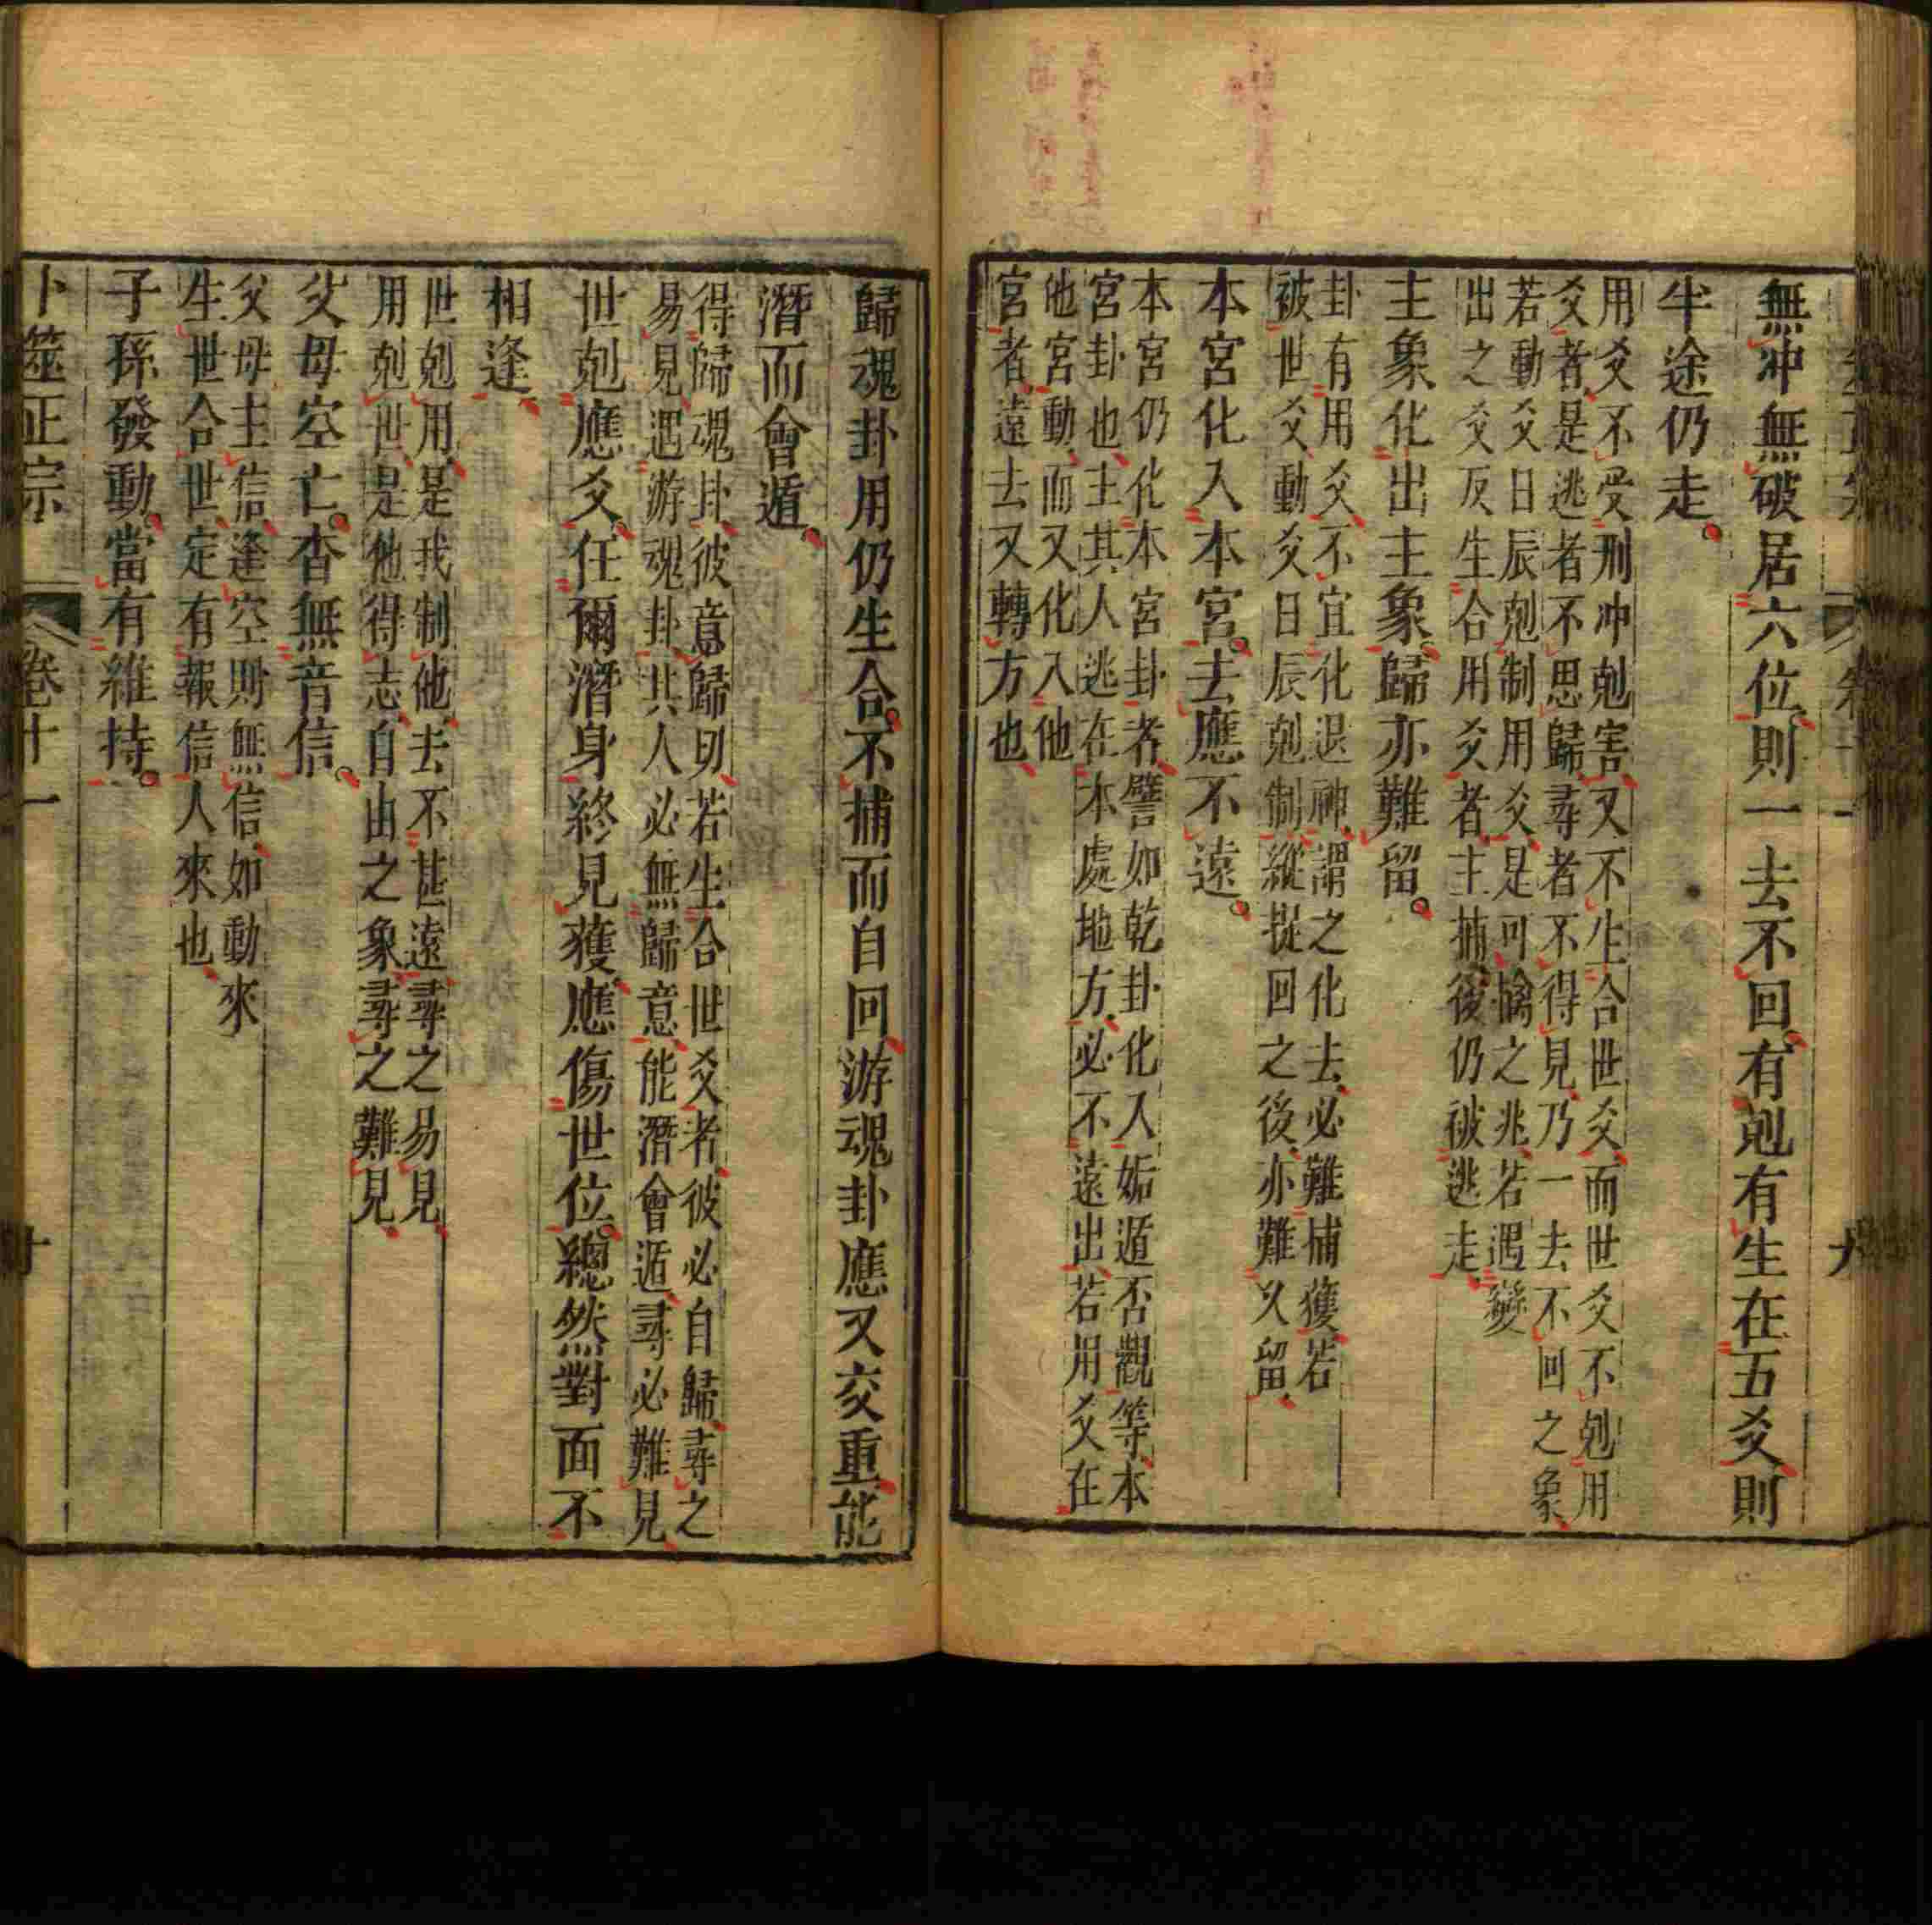 無冲無破居六位則一去不回有剋有生在五爻則
半途仍走
用爻不受刑冲剋害又不生合世爻而世爻不剋用
爻者是逃者不思歸尋者不得見乃一去不回之象
若動爻日辰剋制用爻是可擒之兆若遇變
出之爻反生合用爻者主捕後仍被逃走
主象化出主象歸亦難留
卦有用爻不宜化退神謂之化去必難捕獲若
被世爻動爻日辰剋制縱捉回之後亦難久留
本宮化入本宮去應不遠
本宮仍化本宮卦者譬如乾卦化入姤遁否觀等本
宮卦也主其人逃在本處地方必不遠出若用爻在
他宮動而又化入他
宮者遠去又轉方也
歸魂卦用仍生合不捕而自回游魂卦應又交重能
潛而會遁
得歸魂卦彼意歸切若生合世爻者彼必自歸尋之
易見遇游魂卦其人必無歸意能潛會遁尋必難見
世剋應爻任爾潛身終見獲應傷世位總然對面不
相逢
世剋用是我制他去不甚遠尋之易見
用剋世是他得志自由之象尋之難見
父母空亡杳無音信
父母主信逢空則無信如動來
生世合世定有報信人來也
子孫發動當有維持
卜筮正宗 卷十一 十